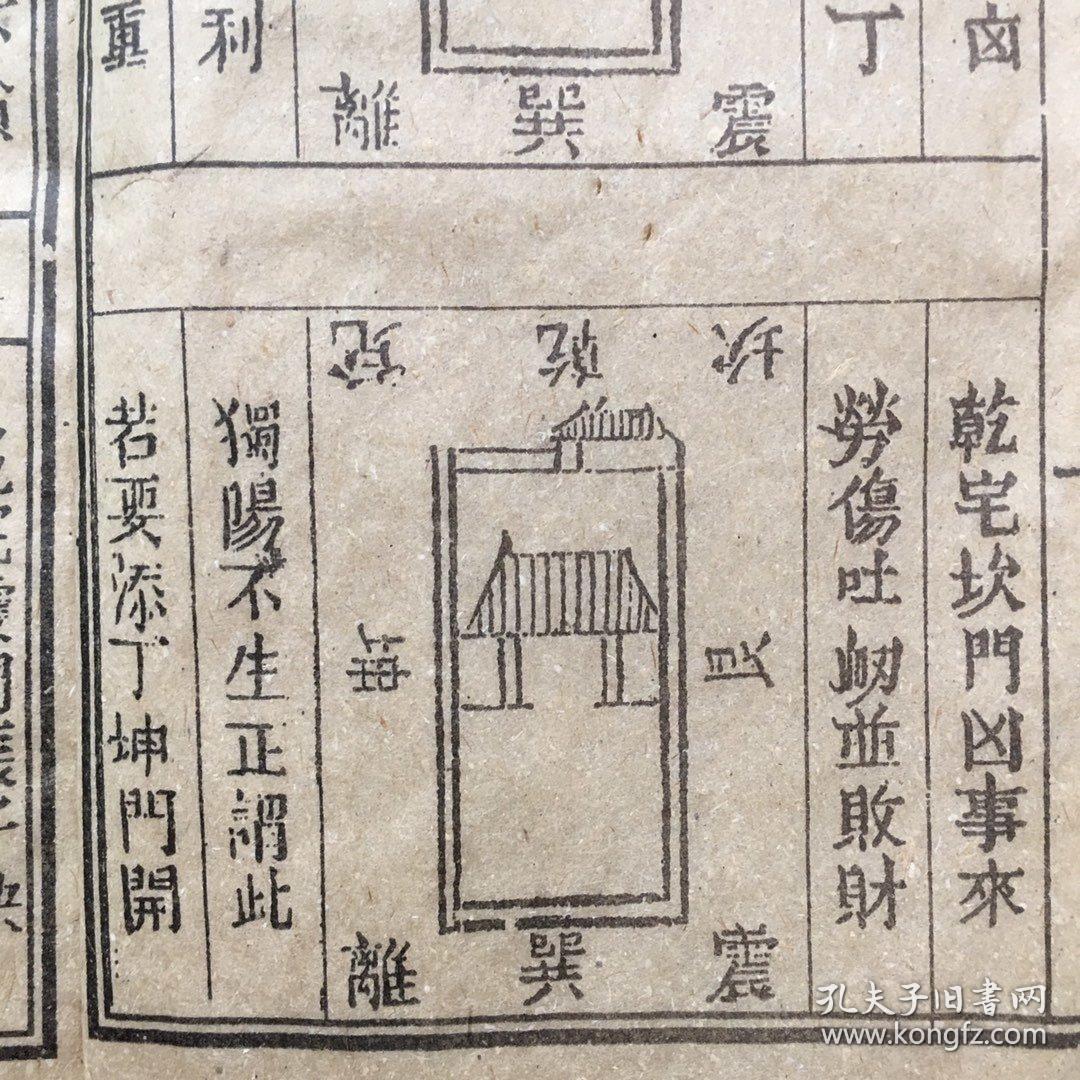 凶
丁
震
巽
離
利
重
乾宅坎門凶事來
勞傷吐衂並敗財
坎
乾
兌
艮
坤
震
巽
離
獨陽不生正謂此
若要添丁坤門開
孔夫子旧书网
www.kongfz.com